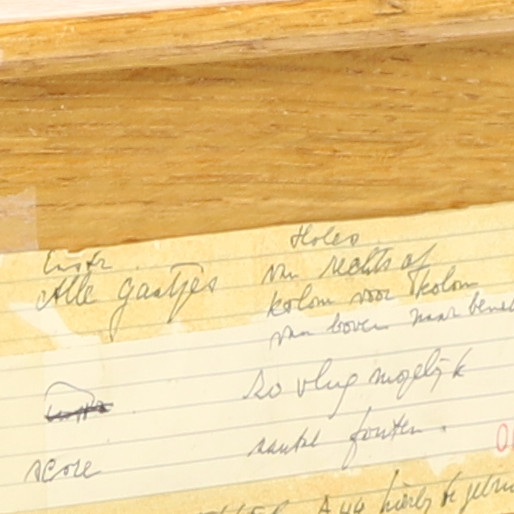 Holes
Instr.
Alle gaatjes van rechts af
kolom voor kolom
van boven naar bene
zo vlug mogelijk
score aantal fouten.